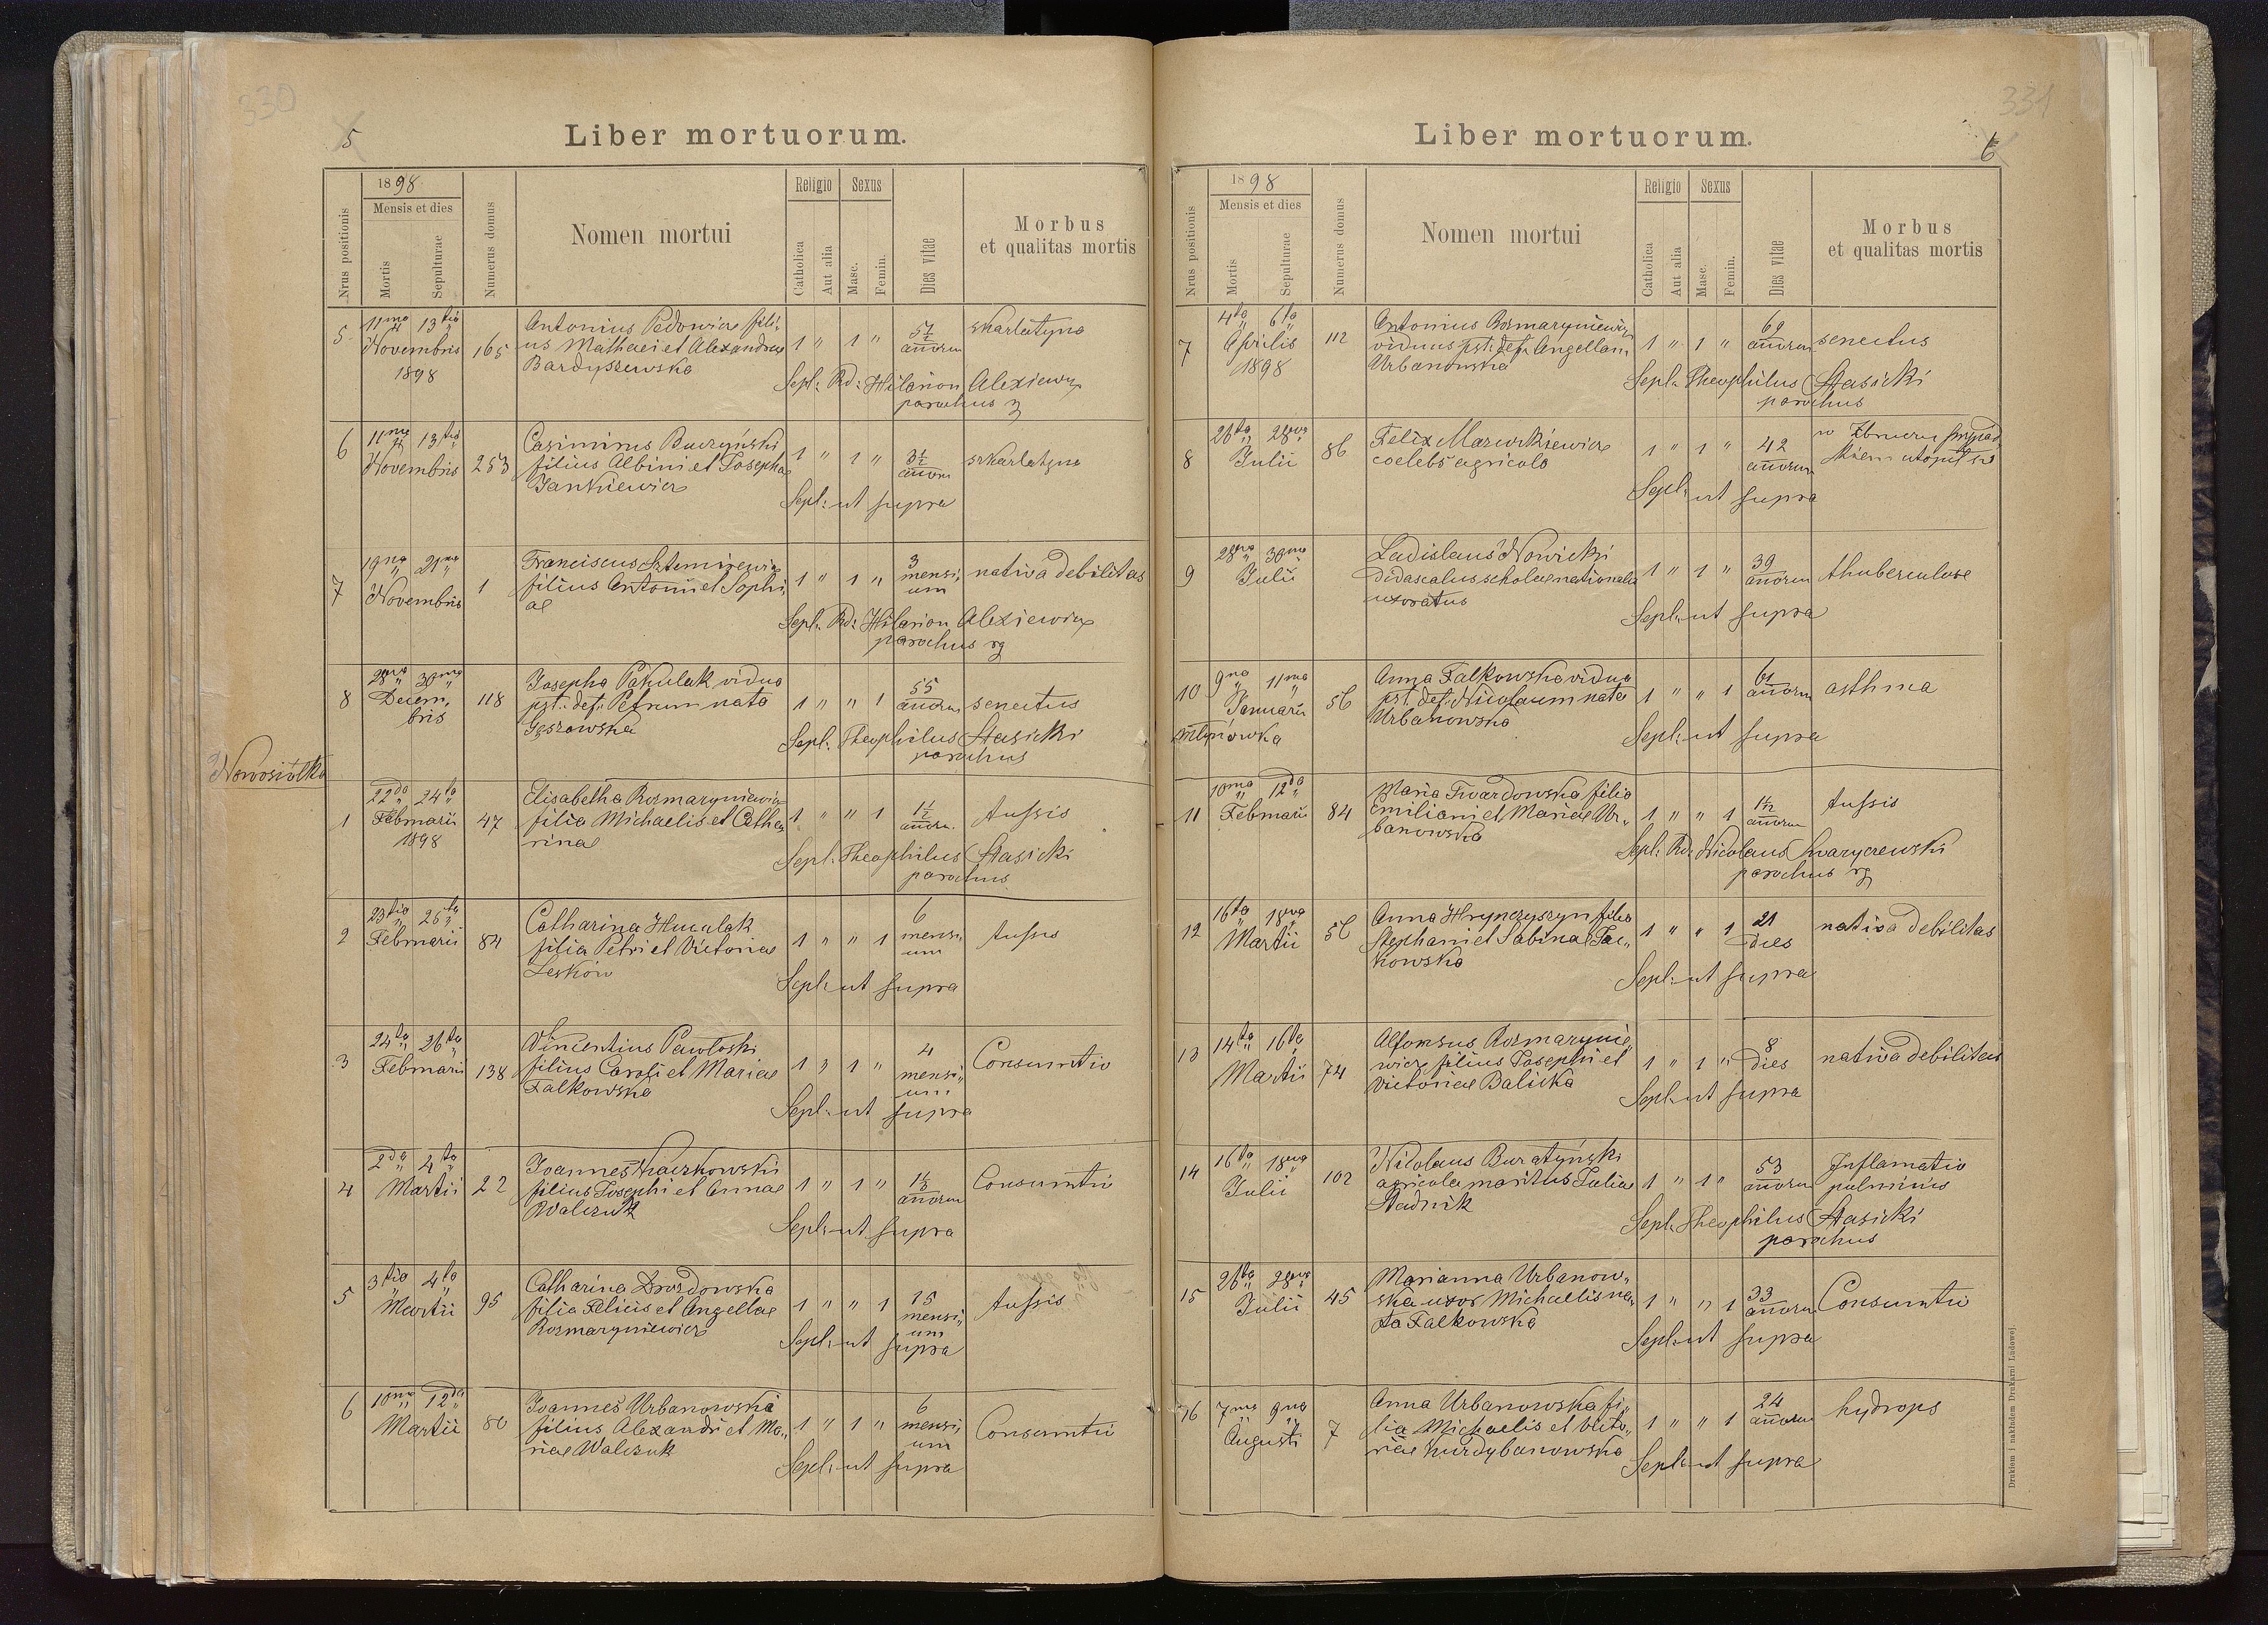 330
5
Liber mortuorum.
Nrus positionis
1898
Mensis et dies
Mortis
Sepulturae
Numerus domus
Nomen mortui
Religio
Catholica
Aut alia
Sexus
Masc.
Femin.
Dies vitae
Morbus
et qualitas mortis
5 11ma 13tia
Novembris
1898
165
Antonius Pedowicz fili-
us Mathaei et Alexandrae
Bardyszewska
1 " 1 "
5 1/2
annorum
skarlatyna
Sepl: Rd: Hilarion Alexiewicz
parochus
6 11ma 13tia
Novembris
253
Casimirus Buczyński
filius Albini et Josepha
Jankiewicz
1 " 1 "
3 1/2
annor
szkarlatyna
Sepl: ut supra
7 19na 21ma
Novembris
1
Franciscus
filius Antonii et Sophi-
ae
1 " 1 "
3
mensi-
um
nativa debilitas
Sepl: Rd: Hilarion Alexiewicz
parochus
8 28va 30ma
Decem-
bris
118
Josepha Pakulak vidua
pst: def: Petrum nata
Gąszowska
1 " " 1
55
annorum
senectus
Sepl: Theophilus Stasicki
parochus
Nowosiołka
1 22da 24ta
Februarii
1898
47
Elisabetha Rozmaryniewicz
filia Michaelis et Catha-
rinae
1 " " 1
1 1/2
annoru.
tussis
Sepl: Theophilus Stasicki
parochus
2 23tia 25ta
Februarii
84
Catharina Huculak
filia Petri et Victoriae
Leśków
1 " " 1
6
mensi-
um
tussis
Sepl: ut supra
3 24ta 26ta
Februarii
138
Vincentius Pawłoski
filius Caroli et Mariae
Falkowska
1 " 1 "
4
mensi-
um
Consumtio
Sepl: ut supra
4 2da 4ta
Martii
22
Joannes Kaczkowski
filius Josephi et Annae
Walczuk
1 " 1 "
annorum
Consumtio
Sepl: ut supra
5 3tia 4ta
Martii
95
Catharina Drozdowska
filia Felicis et Angellae
Rozmaryniewicz
1 " " 1
15
mensi-
um
tussis
Sepl: ut supra
6 10ma 12da
Martii
80
Joannes Urbanowski
filius Alexandri et Ma-
riae Walczuk
1 " 1 "
6
mensi-
um
Consumtio
Sepl: ut supra
331
6
Liber mortuorum.
Nrus positionis
1898
Mensis et dies
Mortis
Sepulturae
Numerus domus
Nomen mortui
Religio
Catholica
Aut alia
Sexus
Masc.
Femin.
Dies vitae
Morbus
et qualitas mortis
7 4ta 6ta
Aprilis
1898
112
Antonius Rozmaryniewicz
viduus pst: def: Angellam
Urbanowska
1 " 1 "
69
annorum
senectus
Sepl: Theophilus Stasicki
parochus
8 26ta 28va
Julii
86
Felix Mazurkiewicz
coelebs agricola
1 " 1 "
42
annorum
w Zbruczu przypad
kiem utopił się
Sepl: ut supra
9 28va 30ma
Julii
Ladislaus Nowicki
didascalus scholae nationalis
uxoratus
1 " 1 "
39
annorum
thuberculose
Sepl: ut supra
10 9na 11ma
Januarii
Młynówka
56
Anna Falkowska vidua
pst. def: Nicolaum nata
Urbanowska
1 " " 1
61
annorum
asthma
Sepl: ut supra
11 10ma 12da
Februarii
84
Maria Twardowska filia
Emiliani et Mariae Ur-
banowska
1 " " 1
1 1/2
annorum
tussis
Sepl: Rd: Nicolaus Kwaryczewski
parochus
12 16ta 18va
Martii
56
Anna Hrynczyszyn filia
Stephani et Sabinae Jac-
kowska
1 " " 1
21
dies
nativa debilitas
Sepl: ut supra
13 14ta 16ta
Martii
74
Alfonsus Rozmarynie-
wicz filius Josephi et
Victoriae Balicka
1 " 1 "
8
dies
nativa debilitas
Sepl: ut supra
14 16ta 18va
Julii
102
Nicolaus Buratyński
agricola maritus Juliae
Stadnik
1 " 1 "
53
annorum
Inflamatio
pulminis
Sepl: Theophilus Stasicki
parochus
15 26ta 28va
Julii
45
Marianna Urbanow-
ska uxor Michaelis na-
ta Falkowska
1 " " 1
33
annorum
Consumtio
Sepl: ut supra
16 7ma 9na
Augusti
7
Anna Urbanowska fi-
lia Michaelis et Victo-
riae Kurdybanowska
1 " " 1
24
annorum
hydrops
Sepl: ut supra
Drukiem i nakładem Drukarni Ludowej.